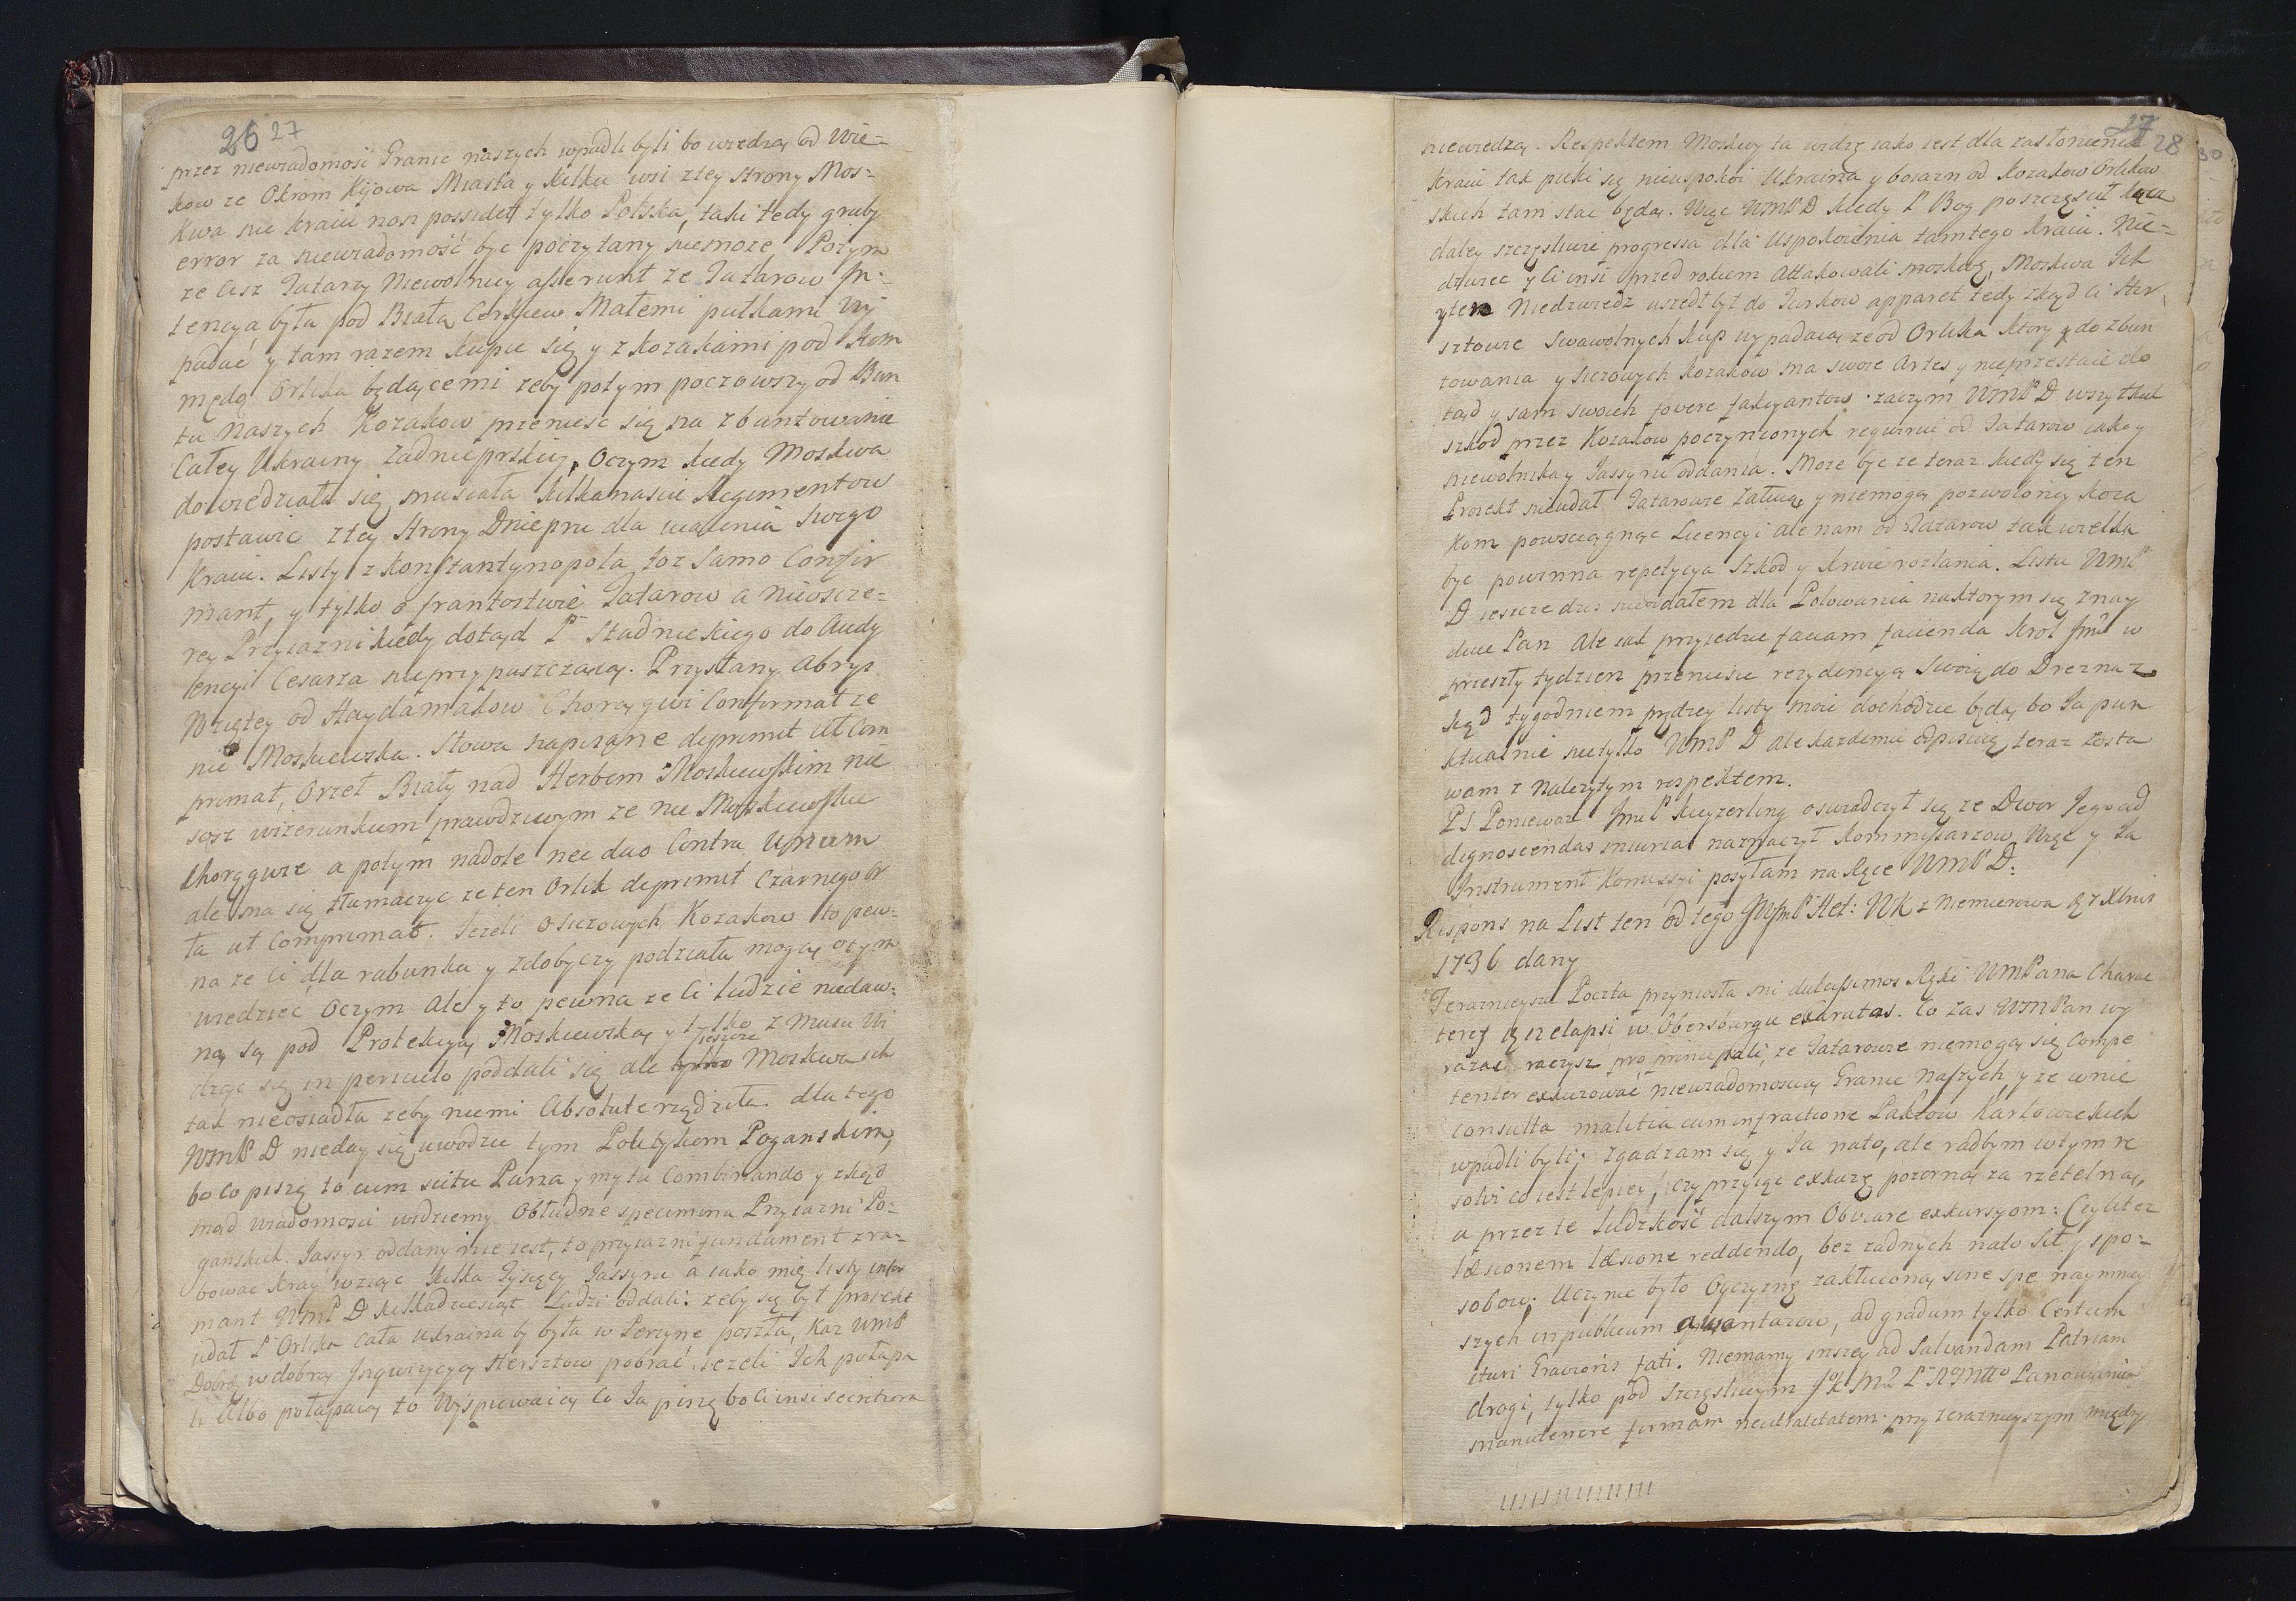 26 27
przez niewiadomość Granic naszych wpadli byli bo wiedzą od wie=
kow ze Okrom Kijowa Miasta y kilku wsi z tey strony Mos=
kwa nic kraiu nasz possidet tylko Polska, taki tedy gruby
error za niewiadomość byc poczytany niemoze Potym
ze ciż Tatarzy Niewolnicy asserunt ze Tatarow In=
tencya była pod Białą Cerkiew Małemi pułkami wy
padać y tam razem kupic się y z kozakami pod kom
mędą Orlika będącemi zeby potym począwszy od Bun
tu Naszych Kozakow przeniesc się na zbuntowanie
Całey Ukrainy Zadnieprskiey, Oczym kiedy Moskwa
dowiedziała się, musiała kilkanascie Regimentow
postawic z tey strony Dniepru dla ucalenia swego
kraiu. Listy z Konstantynopola toz samo Confir
mant, y tylko o frantostwie Tatarow a nieszcze=
rey Przyiazni kiedy dotąd P. Stadnickiego do Audy
encyi Cesarza nieprzypuszczaią. Przysłany Abrys
Wziętey od Haydamakow Chorągwi Confirmat ze
nie Moskiewska. Słowa napisane deprimit ut Com
primat, Orzeł Biały nad Herbem Moskiewskim nie
sąsz wizerunkiem prawdziwym ze nie Moskiewskie
Chorągwie a potym nadole nec duo Contra Unum
ale ma się tłumaczyc ze ten Orlik deprimit Czarnego Or
ła ut Comprimat. Jezeli o Siczowych Kozakow to pew=
na ze Ci dla rabunku y zdobyczy podziału mogą otym
wiedziec Oczym Ale y to pewna ze Ci ludzie niedaw=
no są pod Protekcyą Moskiewską y tylko z Musu Wi
dząc się in periculo poddali się ale ieszcze Moskwa ich
tak nieosiadła zeby niemi Absolute rządziła. dla tego
WmP D nieday się uwodzic tym Politykom Poganskim,
bo co piszę to cum scitu Pana y my tu Combinando y zkąd
inąd wiadomosci widziemy Obłudne specimina Przyiazni Po=
ganskich. Jassyr oddany nie iest, to przyiazni fundament zra=
bowac kray wziąc kilka Tysięcy Jassyru a iako mię listy infor
mant WmP D kilkadziesiąt Ludzi oddali: zeby się był proiekt
udał P Orlika cała Ukraina by była w Perzynę poszła, Kaz WmP
Dobrey w dobrey Inquizycyą Hersztow pobrać iezeli Ich połapa
li Albo połapaią to Wyspiewaią Co Ja piszę bo Ci insi secretiora
27 28
niewiedzą. Respektem Moskwy ta widzę iako iest dla zasłonienia
kraiu tak puki się nieuspokoi Ukraina y boiazn od Kozakow Orlikow
skich tam stac będą. Więc WmP D kiedy P Bog poszczęscił łącz
daley szczęsliwie progressa dla Uspokoienia tamtego kraiu. Nie=
dzwiec y Ci insi przed rokiem Attakowali moskwę, Moskwa Ich
y ten Niedzwiedz uszedł był do Turkow apparet tedy zkąd Ci Her
sztowie Swawolnych kup wypadaią ze od Orlika ktory y do zbun
towania y siczowych kozakow ma swoie Artes y nieprzestaie do
tąd y sam swoich fovere fakcyantow. zaczym WmP D wszytkich
szkod przez Kozakow poczynionych requirui od Tatarow iako y
niewolnika y Jassyru oddania. Moze byc ze teraz kiedy się ten
Proiekt nieudał Tatarowie załuią y niemogą pozwoloney koza
kom powsciągnąc Licencyi ale nam od Tatarow tak wielka
byc powinna repetycya Szkod y krwie rozlania. Listu WmP
D ieszcze dzis nieoddałem dla Polowania naktorym się znay
duie Pan Ale iak przyiedzie faciam facienda krol Jmc w
przeszły tydzien przeniesie rezydencyą Swoię do Drezna z
kąd tygodniem prędzey listy moie dochodzic będą bo Ja pun
ktualnie nietylko WmP D ale kazdemu odpisuię, teraz zosta
wam z Nalezytym respektem.
PS Poniewaz JmP Keyzerling oswiadczył się ze Dwor Jego ad
dignoscendas iniurias naznaczył Kommissarzow, Więc y Ja
Instrument Kommissyi posyłam na Ręce WmP D:
Respons na List ten od tego JWJmP Het: WK z Niemierowa d 7 Xbris
1736 dany
Teraznieysza Poczta przyniosła mi dulcissimos Ręki WmPana Charac
teres d 12 elapsi w Obersburgu exaratas. Co zas WmPan wy
razac raczysz pro principali, ze Tatarowie niemogą się Compe
tenter exkuzować niewiadomoscią Granic Naszych, y ze w nie
consulta malitia cum infractione Paktow Karłowickich
wpadli byli; Zgadzam się y Ja nato, ale radbym wtym re
solvi co iest lepiey, czy przyiąc exkuzę pozorną za rzetelną,
a przez te ludzkość dalszym Obviare exkursyom: Czyli tez
laesionem laesione reddendo, bez zadnych nato sił y spo=
sobow; Uczynic było Oyczyznę zakłuconą sine spe naymniey
szych in publicum awantazow, ad gradum tylko Certum
ituri Gravioris fati. Niemamy inszey ad Salvandam Patriam
drogi, tylko pod szczęsliwym JK Mci P NMtto Panowaniem
manutenere firmam neutralitatem przy teraznieyszym między